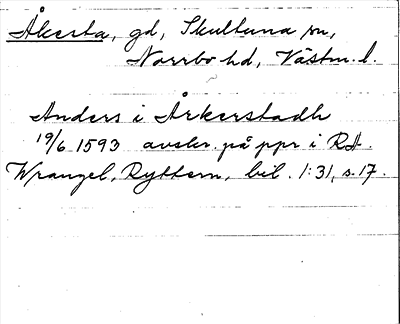 Åkersta, gd, Skultuna sn,
Norrbo hd, Västm. l.
Anders i Årkerstadh
19/6 1593 avskr. på ppr i RA.
Wrangel, Ryttern, bil. 1:31, s. 17.